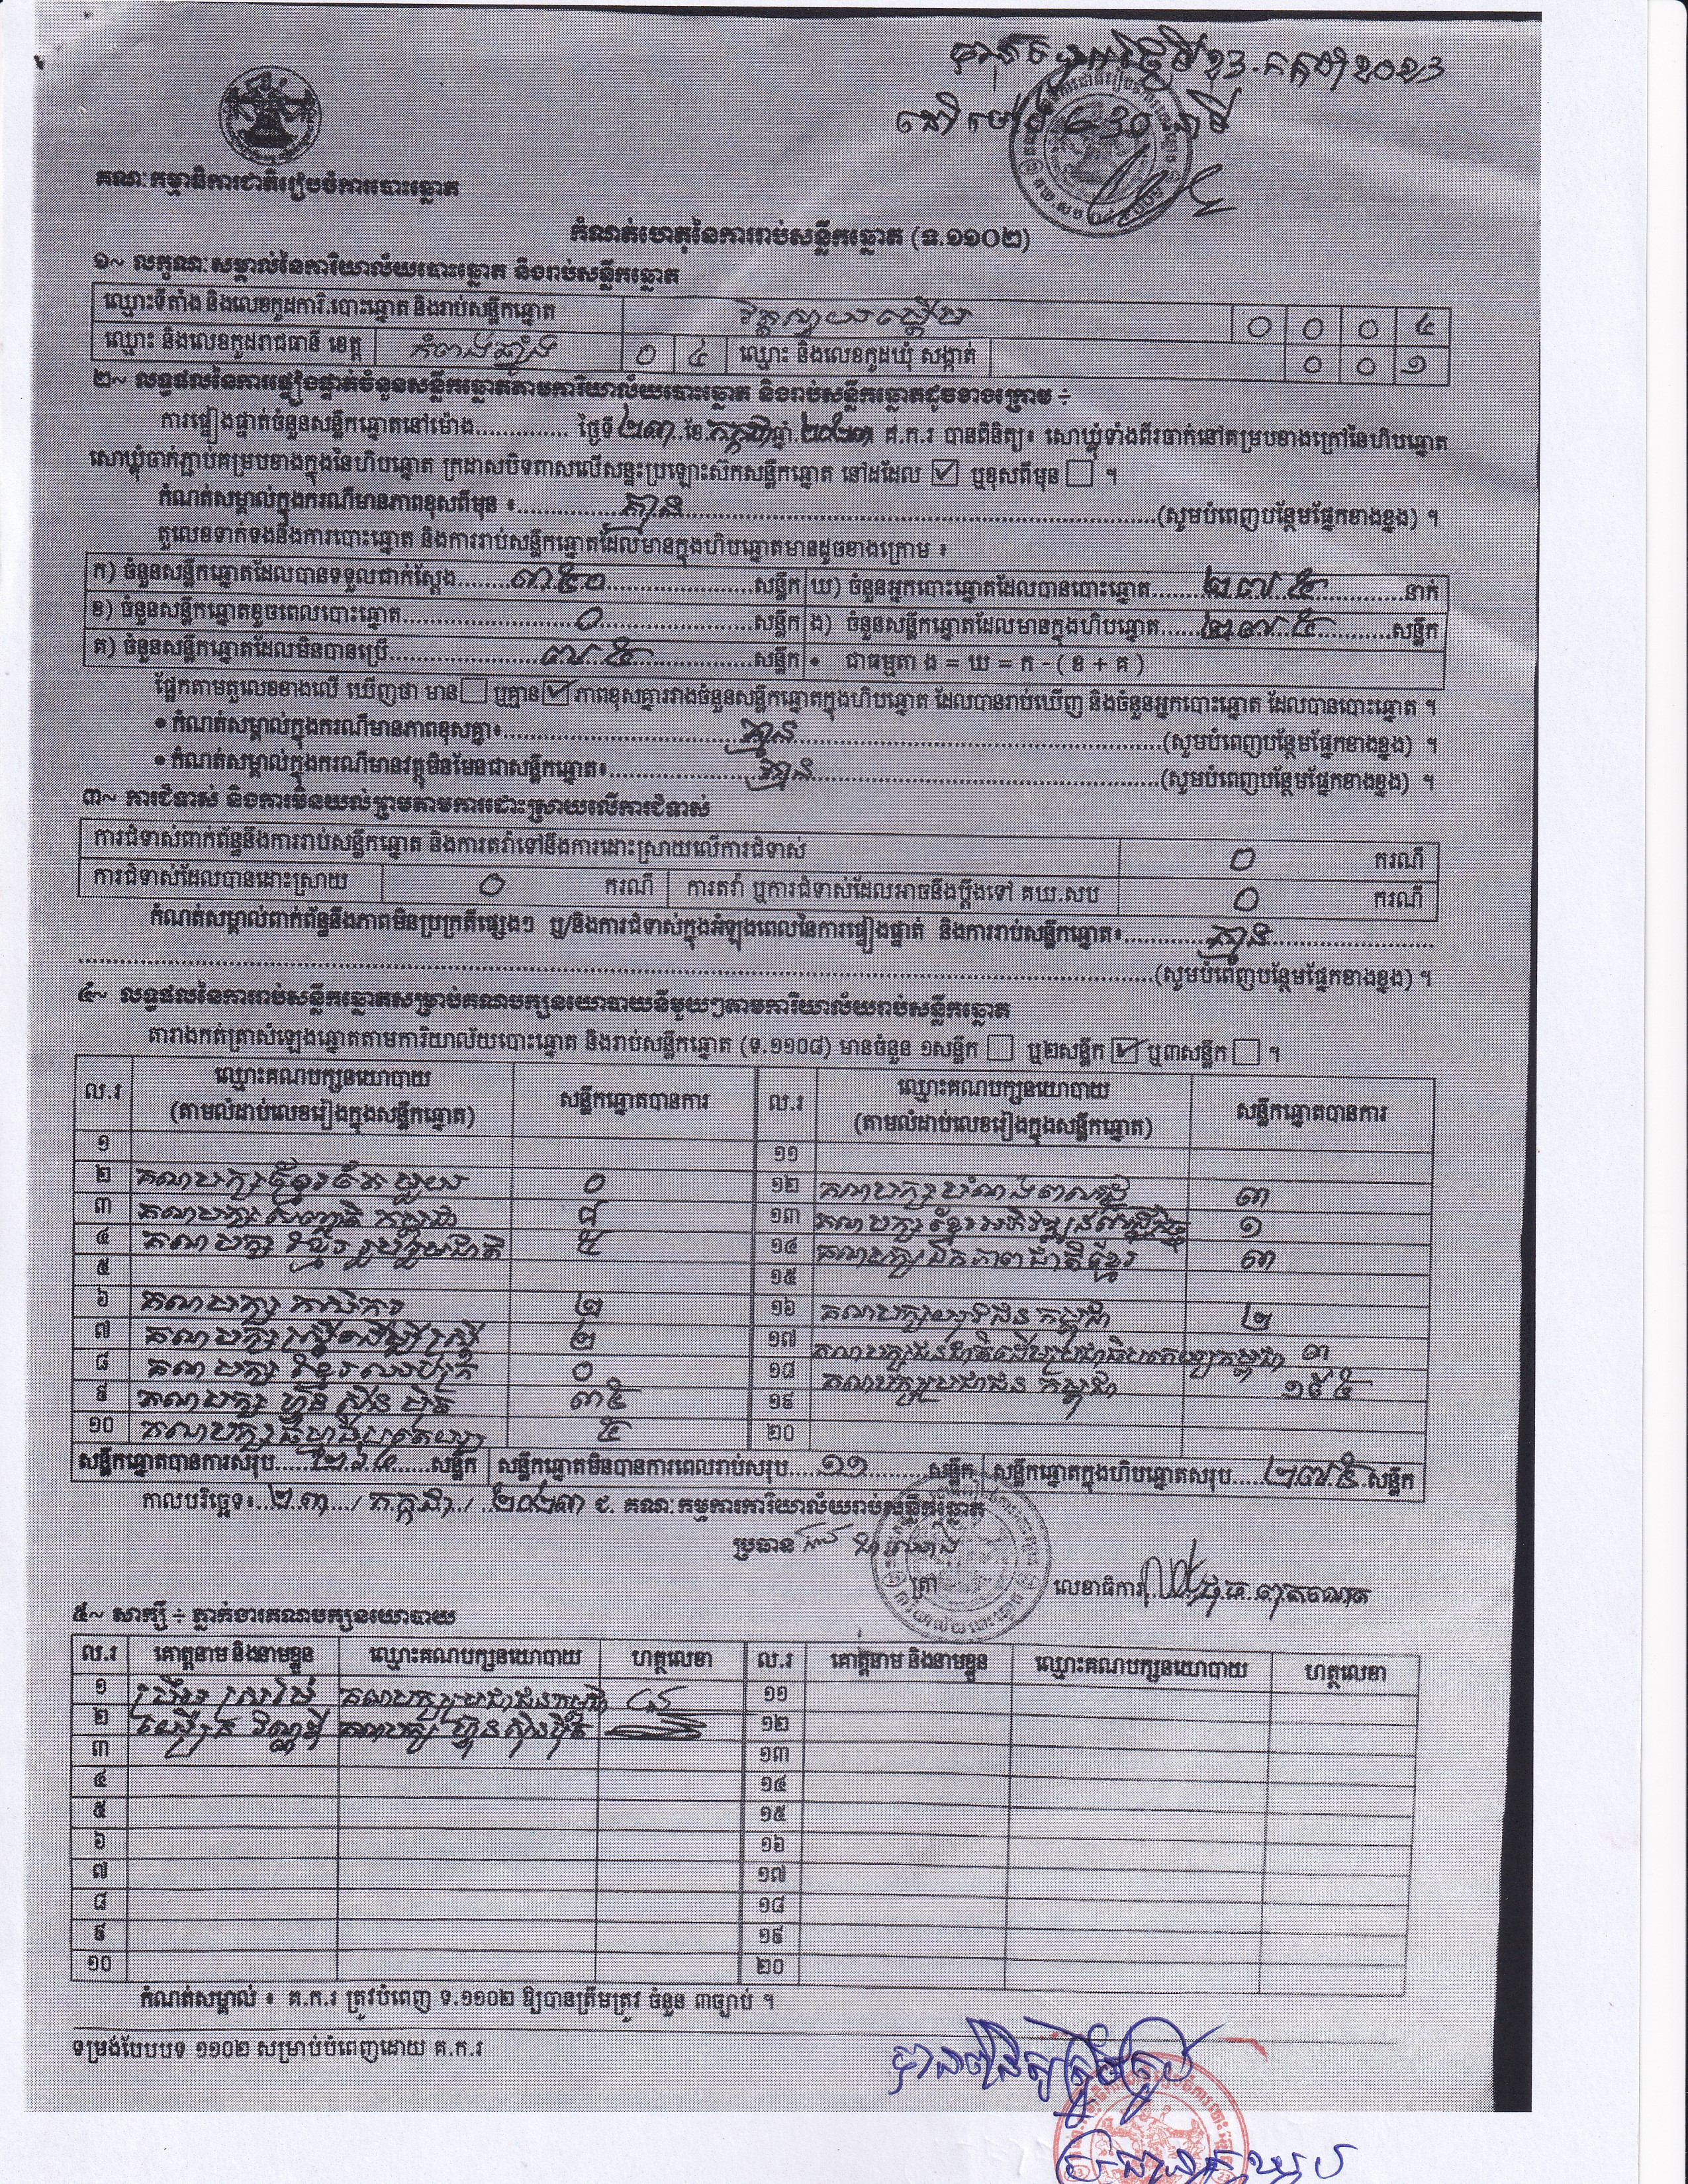 គណៈកម្មាធិការជាតិរៀបចំការបោះឆ្នោត
កំណត់ហេតុនៃការរាប់សន្លឹកឆ្នោត (ទ.១១០២)
១~ លក្ខណៈសម្គាល់នៃការិយាល័យបោះឆ្នោត និងរាប់សន្លឹកឆ្នោត
ឈ្មោះទីតាំង និងលេខកូដការិ.បោះឆ្នោត និងរាប់សន្លឹកឆ្នោត ០ ០ ០ ៤
ឈ្មោះ និងលេខកូដរាជធានី ខេត្ត កំពង់ឆ្នាំង ០ ៤ ឈ្មោះ និងលេខកូដឃុំ សង្កាត់ ០ ០ ១
២~ លទ្ធផលនៃការផ្ទៀងផ្ទាត់ចំនួនសន្លឹកឆ្នោតតាមការិយាល័យបោះឆ្នោត និងរាប់សន្លឹកឆ្នោតដូចខាងក្រោម ÷
ការផ្ទៀងផ្ទាត់ចំនួនសន្លឹកឆ្នោតនៅម៉ោង.............. ថ្ងៃទី២៣..ខែ.កក្កដា.ឆ្នាំ.២០២៣ គ.ក.រ បានពិនិត្យ៖ សោឃ្លុំទាំងពីរចាក់នៅគម្របខាងក្រៅនៃហិបឆ្នោត
សោឃ្លុំចាក់ភ្ជាប់គម្របខាងក្នុងនៃហិបឆ្នោត ក្រដាសបិទពាសលើសន្ទះប្រឡោះស៊កសន្លឹកឆ្នោត នៅដដែល ☑ ឬខុសពីមុន ☐ ។
កំណត់សម្គាល់ក្នុងករណីមានភាពខុសពីមុន ៖..............គ្មាន..............(សូមបំពេញបន្ថែមផ្នែកខាងខ្នង) ។
តួលេខទាក់ទងនឹងការបោះឆ្នោត និងការរាប់សន្លឹកឆ្នោតដែលមានក្នុងហិបឆ្នោតមានដូចខាងក្រោម ៖
ក) ចំនួនសន្លឹកឆ្នោតដែលបានទទួលជាក់ស្តែង........៣៥០..............សន្លឹក ឃ) ចំនួនអ្នកបោះឆ្នោតដែលបានបោះឆ្នោត........២៧៥..............នាក់
ខ) ចំនួនសន្លឹកឆ្នោតខូចពេលបោះឆ្នោត..............០..............សន្លឹក ង) ចំនួនសន្លឹកឆ្នោតដែលមានក្នុងហិបឆ្នោត......២៧៥............សន្លឹក
គ) ចំនួនសន្លឹកឆ្នោតដែលមិនបានប្រើ..............៧៥..............សន្លឹក • ជាធម្មតា ង = ឃ = ក - ( ខ + គ )
ផ្អែកតាមតួលេខខាងលើ ឃើញថា មាន☐ ឬគ្មាន☑ ភាពខុសគ្នារវាងចំនួនសន្លឹកឆ្នោតក្នុងហិបឆ្នោត ដែលបានរាប់ឃើញ និងចំនួនអ្នកបោះឆ្នោត ដែលបានបោះឆ្នោត ។
• កំណត់សម្គាល់ក្នុងករណីមានភាពខុសគ្នា៖..............គ្មាន..............(សូមបំពេញបន្ថែមផ្នែកខាងខ្នង) ។
• កំណត់សម្គាល់ក្នុងករណីមានវត្ថុមិនមែនជាសន្លឹកឆ្នោត៖..............គ្មាន..............(សូមបំពេញបន្ថែមផ្នែកខាងខ្នង) ។
៣~ ការជំទាស់ និងការមិនយល់ព្រមតាមការដោះស្រាយលើការជំទាស់
ការជំទាស់ពាក់ព័ន្ធនឹងការរាប់សន្លឹកឆ្នោត និងការតវ៉ាទៅនឹងការដោះស្រាយលើការជំទាស់ ០ ករណី
ការជំទាស់ដែលបានដោះស្រាយ ០ ករណី ការតវ៉ា ឬការជំទាស់ដែលអាចនឹងប្តឹងទៅ គឃ.សប ០ ករណី
កំណត់សម្គាល់ពាក់ព័ន្ធនឹងភាពមិនប្រក្រតីផ្សេងៗ ឬ/និងការជំទាស់ក្នុងអំឡុងពេលនៃការផ្ទៀងផ្ទាត់ និងការរាប់សន្លឹកឆ្នោត៖..............គ្មាន..............
..............(សូមបំពេញបន្ថែមផ្នែកខាងខ្នង) ។
៤~ លទ្ធផលនៃការរាប់សន្លឹកឆ្នោតសម្រាប់គណបក្សនយោបាយនីមួយៗតាមការិយាល័យរាប់សន្លឹកឆ្នោត
តារាងកត់ត្រាសំឡេងឆ្នោតតាមការិយាល័យបោះឆ្នោត និងរាប់សន្លឹកឆ្នោត (ទ.១១០៨) មានចំនួន ១សន្លឹក ☐ ឬ២សន្លឹក ☑ ឬ៣សន្លឹក ☐ ។
ល.រ ឈ្មោះគណបក្សនយោបាយ (តាមលំដាប់លេខរៀងក្នុងសន្លឹកឆ្នោត) សន្លឹកឆ្នោតបានការ ល.រ ឈ្មោះគណបក្សនយោបាយ (តាមលំដាប់លេខរៀងក្នុងសន្លឹកឆ្នោត) សន្លឹកឆ្នោតបានការ
១ ១១
២ គណបក្សខ្មែរតែមួយ ០ ១២ គណបក្ស ៣
៣ គណបក្ស កម្ពុជា ៨ ១៣ គណបក្សខ្មែរអភិវឌ្ឍន៍សេដ្ឋកិច្ច ១
៤ គណបក្ស ខ្មែររួបរួមជាតិ ៥ ១៤ គណបក្សឯកភាពជាតិខ្មែរ ៣
៥ ១៥
៦ គណបក្ស កសិករ ២ ១៦ គណបក្សយុវជន កម្ពុជា ២
៧ គណបក្សស្ត្រីដើម្បីស្ត្រី ២ ១៧ គណបក្សជនជាតិដើមប្រជាធិបតេយ្យកម្ពុជា ៣
៨ គណបក្ស ខ្មែរឈប់ក្រ ០ ១៨ គណបក្សប្រជាជន កម្ពុជា ១៩៥
៩ គណបក្ស ហ៊្វុនស៊ិនប៉ិច ៣៥ ១៩
១០ គណបក្ស ៥ ២០
សន្លឹកឆ្នោតបានការសរុប.....២៦៤........សន្លឹក សន្លឹកឆ្នោតមិនបានការពេលរាប់សរុប....១១........សន្លឹក សន្លឹកឆ្នោតក្នុងហិបឆ្នោតសរុប....២៧៥.សន្លឹក
កាលបរិច្ឆេទ៖..២៣..../ កក្កដា./ ..២០២៣ ជ. គណៈកម្មការការិយាល័យរាប់សន្លឹកឆ្នោត
ប្រធាន
ត្រា លេខាធិការ
៥~ សាក្សី ÷ ភ្នាក់ងារគណបក្សនយោបាយ
ល.រ គោត្តនាម និងនាមខ្លួន ឈ្មោះគណបក្សនយោបាយ ហត្ថលេខា ល.រ គោត្តនាម និងនាមខ្លួន ឈ្មោះគណបក្សនយោបាយ ហត្ថលេខា
១ គណបក្សប្រជាជនកម្ពុជា ១១
២ គណបក្ស ហ៊្វុនស៊ិនប៉ិច ១២
៣ ១៣
៤ ១៤
៥ ១៥
៦ ១៦
៧ ១៧
៨ ១៨
៩ ១៩
១០ ២០
កំណត់សម្គាល់ ៖ គ.ក.រ ត្រូវបំពេញ ទ.១១០២ ឱ្យបានត្រឹមត្រូវ ចំនួន ៣ច្បាប់ ។
ទម្រង់បែបបទ ១១០២ សម្រាប់បំពេញដោយ គ.ក.រ